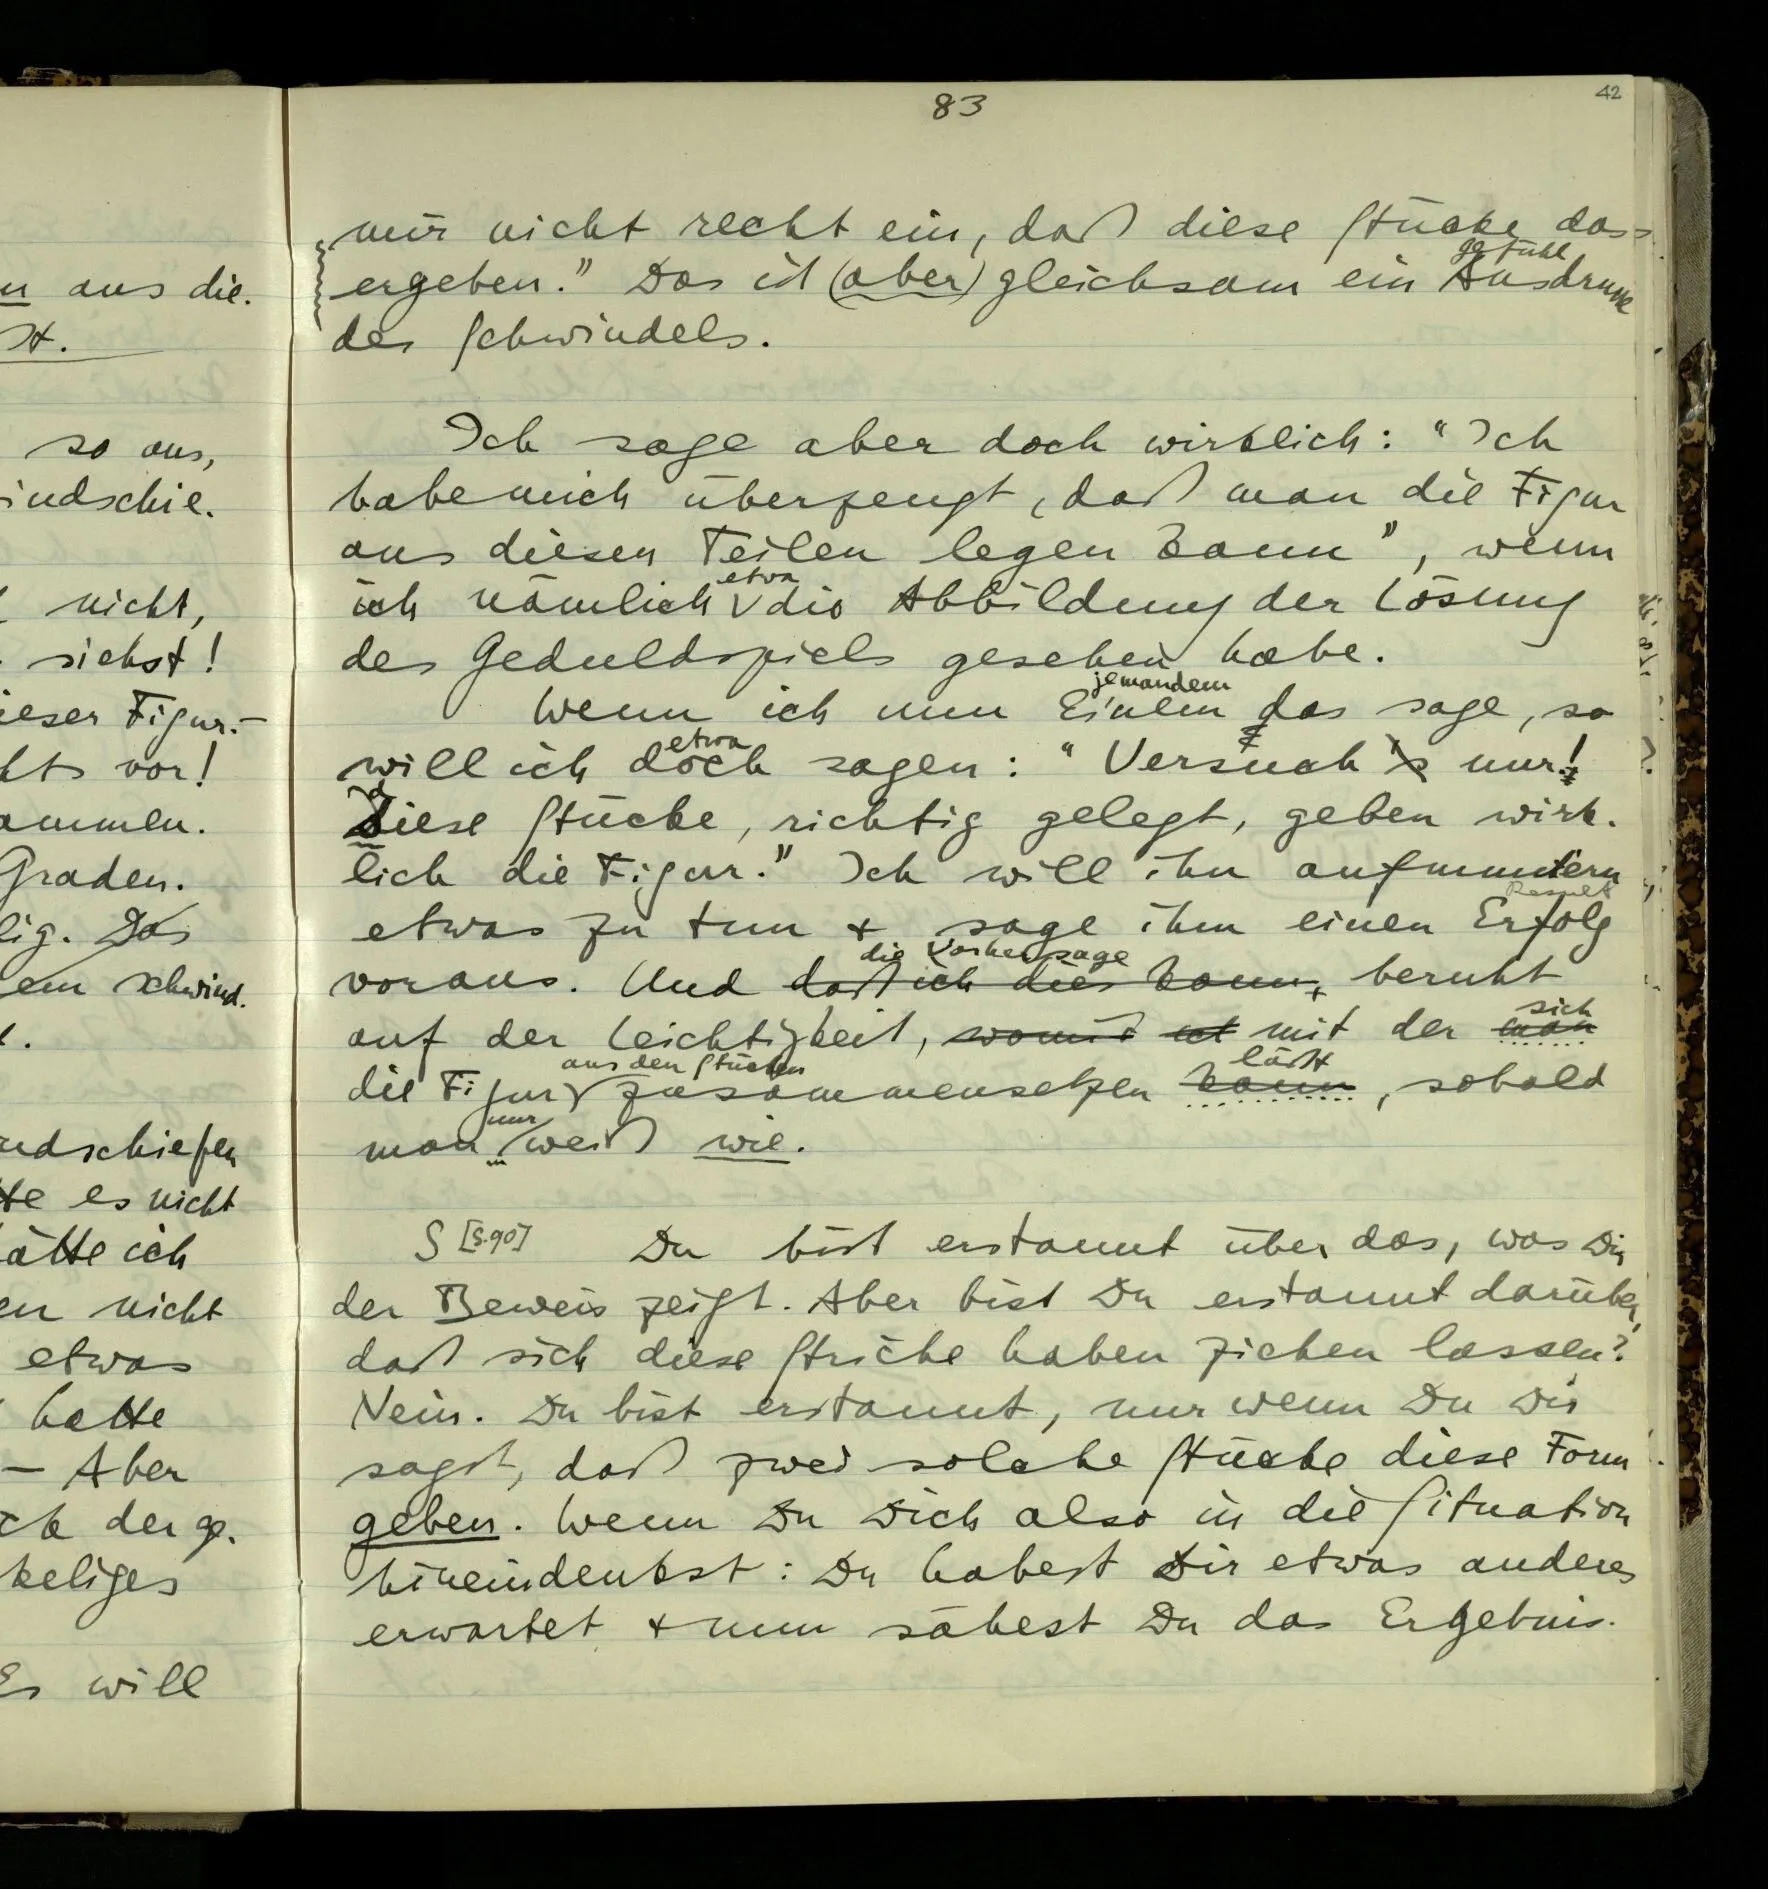 n aus die-
st.
so aus,
indschie-
nicht,
siehst!
ieser Figur. –
hts vor!
ammen.
Graden.
lig. Das
em schwind-
t.
ndschiefen
te es nicht
ätte ich
en nicht
etwas
hatte
– Aber
ch der ge-
keliges
Es will
83
42
mir nicht recht ein, daß diese Stücke das
gefühl
ergeben." Das ist (aber) gleichsam ein Ausdruck
des Schwindels.
Ich sage aber doch wirklich: "Ich
habe mich überzeugt, daß man die Figur
aus diesen Teilen legen kann", wenn
etwa
ich nämlich die Abbildung der Lösung
des Geduldspiels gesehen habe.
jemandem
Wenn ich nun Einem das sage, so
etwa
will ich doch sagen: "Versuch 's nur!
Diese Stücke, richtig gelegt, geben wirk-
lich die Figur." Ich will ihn aufmuntern
Result
etwas zu tun & sage ihm einen Erfolg
die Vorhersage
voraus. Und daß ich dies kann, beruht
sich
auf der Leichtigkeit, womit mit der man
aus den Stücken läßt
die Figur zusammensetzen kann, sobald
nur
man weiß wie.
S [S.90] Du bist erstaunt über das, was Dir
der Beweis zeigt. Aber bist Du erstaunt darüber,
daß sich diese Striche haben ziehen lassen?
Nein. Du bist erstaunt, nur wenn Du Dir
sagst, daß zwei solche Stücke diese Form
geben. Wenn Du Dich also in die Situation
hineindenkst: Du habest Dir etwas anderes
erwartet & nun sähest Du das Ergebnis.